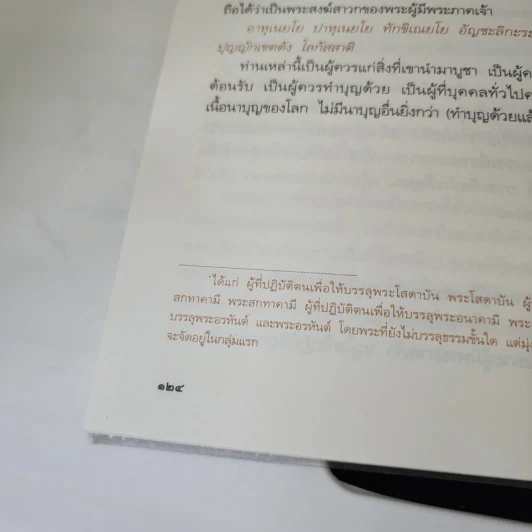 ถือได้ว่าเป็นพระสงฆ์สาวกของพระผู้มีพระภาคเจ้า
อาหุเนยโย ปาหุเนยโย ทักขิเณยโย อัญชะลิกะระ
ปุญญักเขตตัง โลกัสสาติ
ท่านเหล่านี้เป็นผู้ควรแก่สิ่งที่เขานำมาบูชา เป็นผู้ค
ต้อนรับ เป็นผู้ควรทำบุญด้วย เป็นผู้ที่บุคคลทั่วไปค
เนื้อนาบุญของโลก ไม่มีนาบุญอื่นยิ่งกว่า (ทำบุญด้วยแล้
ได้แก่ ผู้ที่ปฏิบัติตนเพื่อให้บรรลุพระโสดาบัน พระโสดาบัน ผู้
สกทาคามี พระสกทาคามี ผู้ที่ปฏิบัติตนเพื่อให้บรรลุพระอนาคามี พระ
บรรลุพระอรหันต์ และพระอรหันต์ โดยพระที่ยังไม่บรรลุธรรมขั้นใด แต่มุ่
จะจัดอยู่ในกลุ่มแรก
๑๒๔